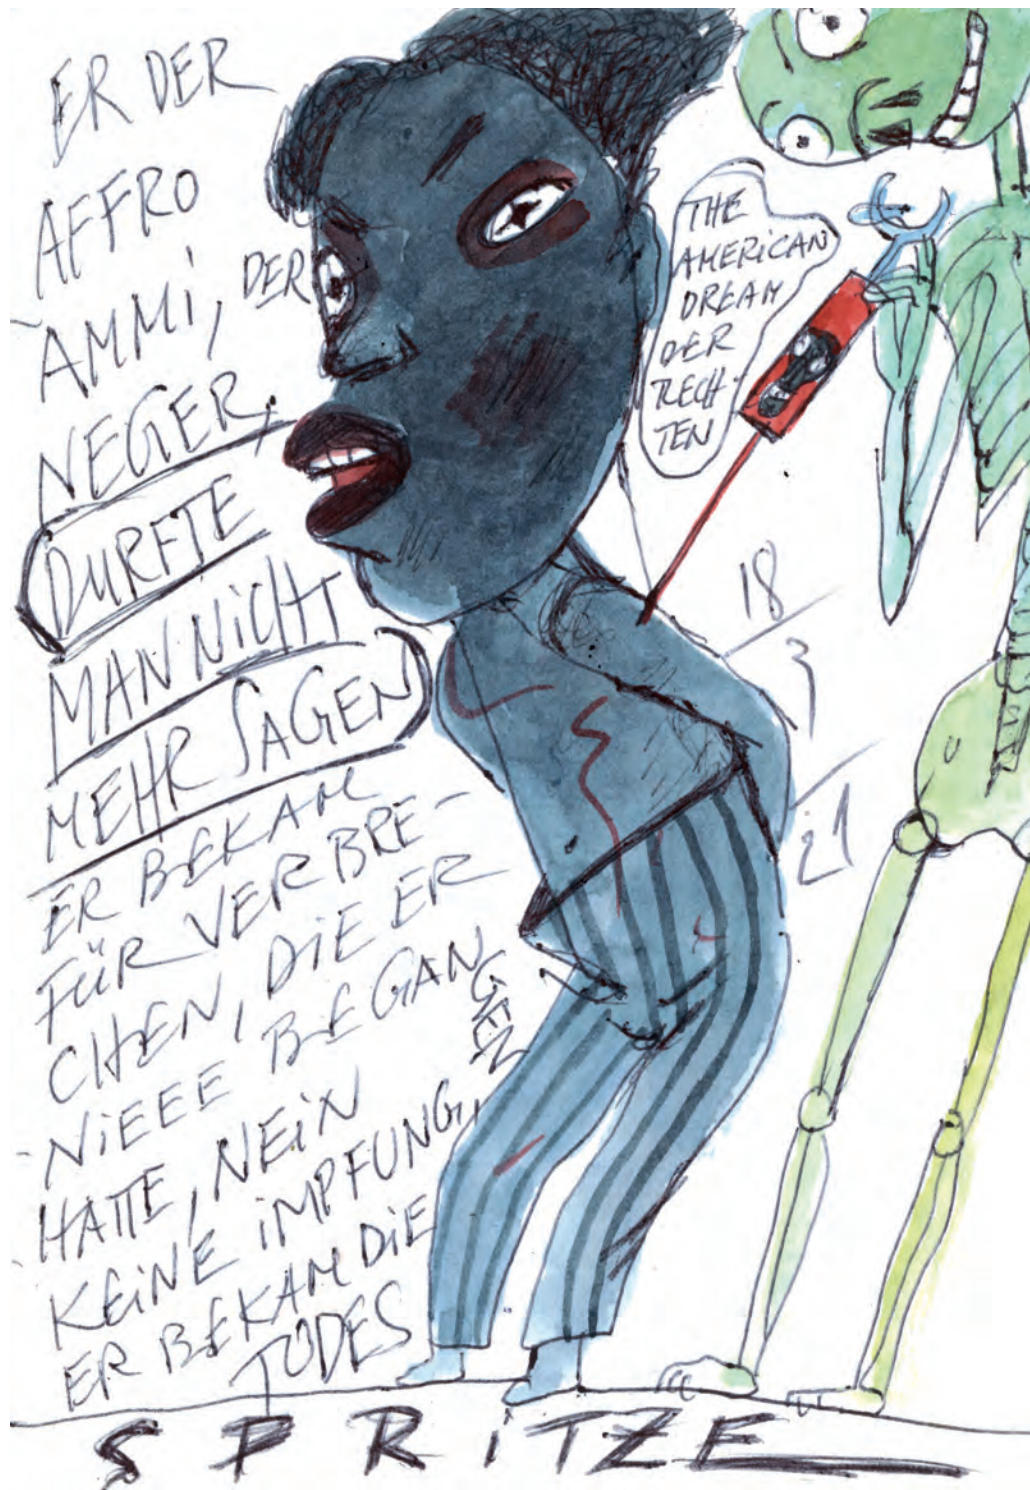 ER DER
AFFRO
AMMI, DER
NEGER,
DURFTE
MAN NICHT
MEHR SAGEN
ER BEKAM
FÜR VERBRE-
CHEN, DIE ER
NIEEE BEGAN
GEN
HATTE, NEIN
KEINE IMPFUNG,
ER BEKAM DIE
TODES
SPRITZE
THE
AMERICAN
DREAM
DER
RECH-
TEN
18
3
21